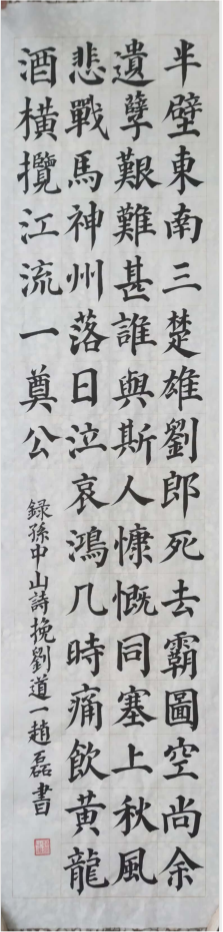 半壁東南三楚雄劉郎死去霸圖空尚余
遺孽艱難甚誰與斯人慷慨同塞上秋風
悲戰馬神州落日泣哀鴻几時痛飲黃龍
酒橫攬江流一奠公
録孫中山詩挽劉道一趙磊書